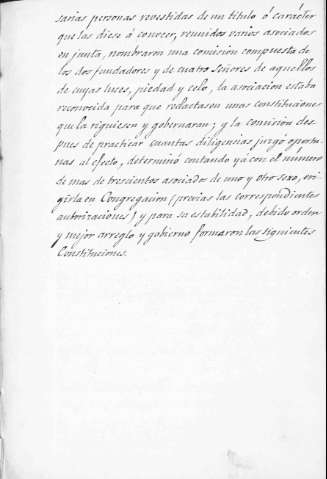 sarias personas revestidas de un titulo ó carácter
que las diese á conocer, reunidos varios asociados
en junta, nombraron una comision compuesta de
los dos fundadores y de cuatro Señores de aquellos
de cuyas luces, piedad y celo, la asociacion estaba
reconocida para que redactasen unas constituciones
que la rigiesen y gobernaran; y la comision des-
pues de practicar cuantas diligencias juzgó oportu-
nas al efecto, determinó contando yá con el número
de mas de trescientos asociados de uno y otro sexo, eri-
girla en Congregacion (previas las correspondientes
autorizaciones) y para su estabilidad, debido orden
y mejor arreglo y gobierno formaron las siguientes
Constituciones.